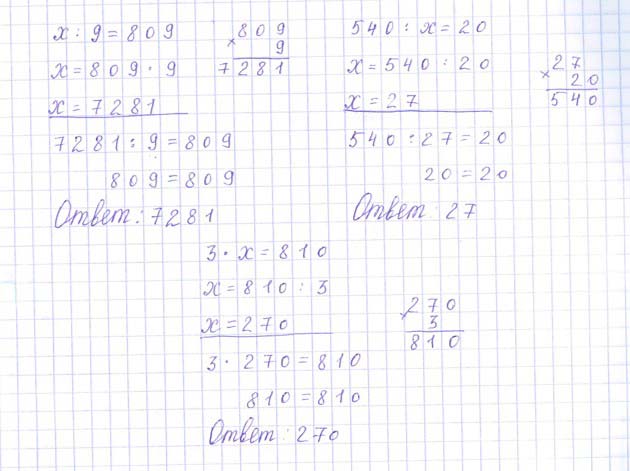 x : 9 = 809
x = 809 · 9
x = 7281
7281 : 9 = 809
809 = 809
Ответ: 7281
809
× 9
7281
540 : x = 20
x = 540 : 20
x = 27
540 : 27 = 20
20 = 20
Ответ: 27
27
× 20
540
3 · x = 810
x = 810 : 3
x = 270
3 · 270 = 810
810 = 810
Ответ: 270
270
× 3
810